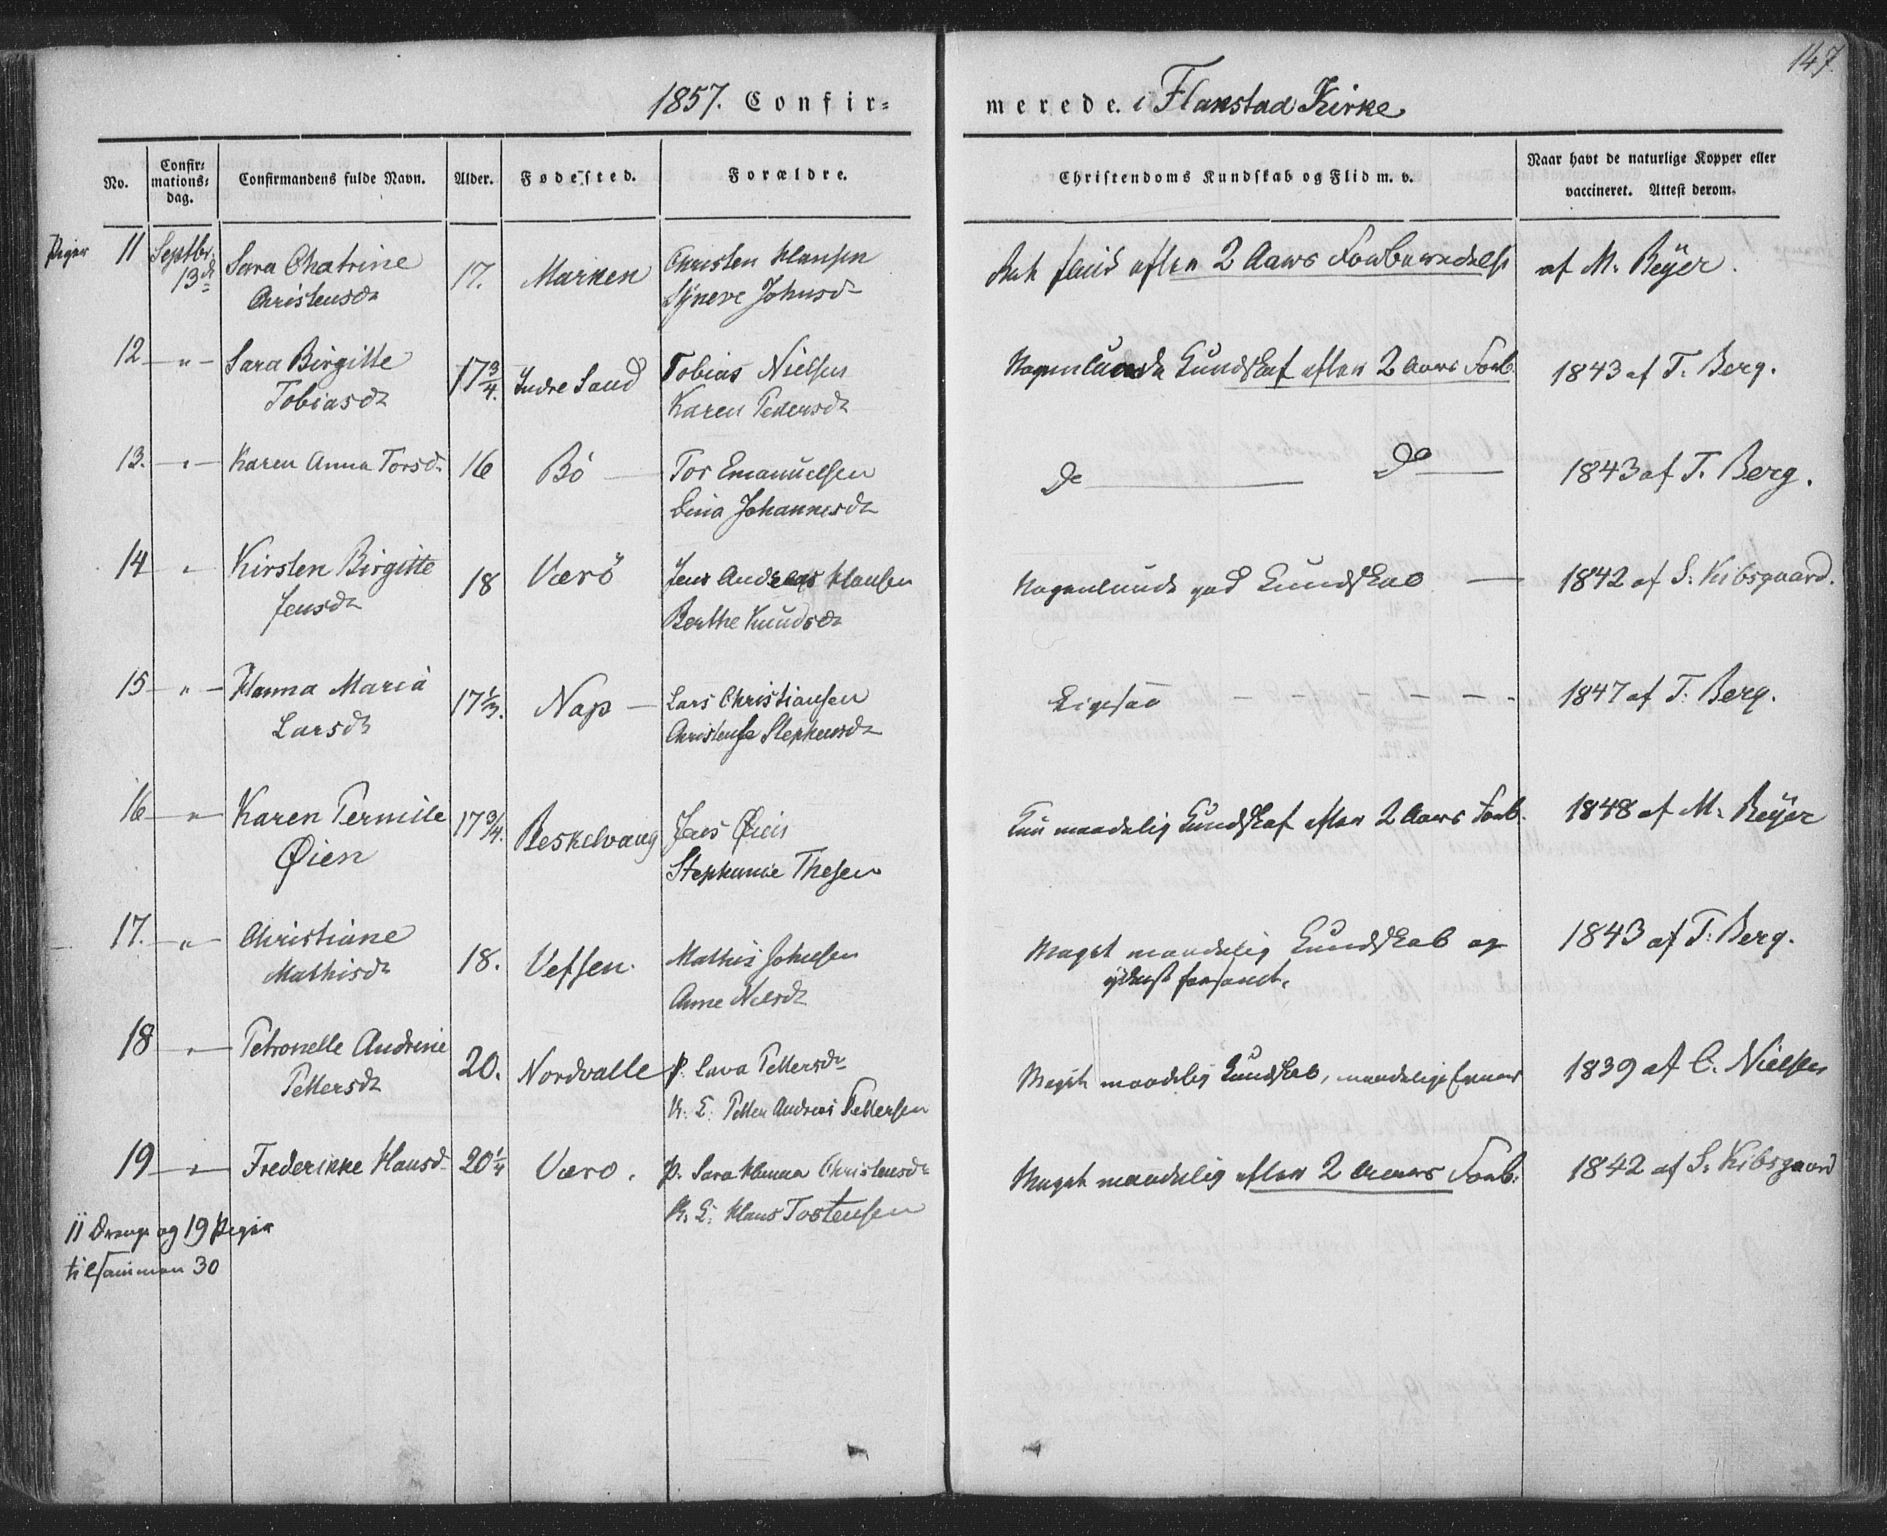 147.
1857. Confir=
merede. i Flakstad Kirke
No.
Confir=
mations=
dag.
Confirmandens fulde Navn.
Alder.
Fødested.
Forældre.
Christendoms Kundskab og Flid m. v.
Naar havt de naturlige Kopper eller
vaccineret. Attest derom.
Piger 11 Septbr. 13d Sara Chatrine 17. Marken Christen Hansen
Christensdr Synere Johnsd
efter 2 Aars Forberedelse af M. Beÿer.
12 — " — Sara Birgitte 17 3/4. Indre Sand Tobias Nielsen
Tobiasdr Karen Pedersdr
Nogenlunde Kundskab efter 2 Aars Forb. 1843 af T. Berg.
13. — " — Karen Anna Torsd. 16 Bö — Tor Emanuelsen
Lina Johannesdr
Do — Do — 1843 af T. Berg.
14 " Kirsten Birgitte 18 Værö Jens Andreas Hansen
Jensdr Berthe Knudsdr
Nogenlunde god Kundskab — 1842 af S. Kibsgaard.
15 — " — Hanna Maria 17 1/3. Nap — Lars Christiansen
Larsdr Christense Stephensdr
Ligesaa - - - - - - - 1847 af T. Berg.
16 — " Karen Pernille 17 3/4. Beskelvang Jens Øien
Øien Stephanie Thesen
maadelig Kundskab efter 2 Aars Forb. 1848 af M. Beÿer
17. — " — Christiane 18. Vefsen. Mathis Johnsen
Mathisdr Anne Nilsdr
Meget maadelig Kundskab og 1843 af T. Berg.
yderst forsømt.
18 — " — Petronelle Andrine 20. Nordvalle P. Lava Pettersdr
Pettersdr U. E. Petter Andreas Pettersen
Meget maadelig Kundskab, maadelige Evner 1839 af C. Nielsen
19 — " — Frederikke Hansd. 20 1/4 Værö. P. Sara Hanna Christensdr
U. E. Hans Tostensen
Meget maadelig efter 2 Aars Forb. 1842 af S. Kibsgaard
11 Drenge og 19 Piger
tilsammen 30